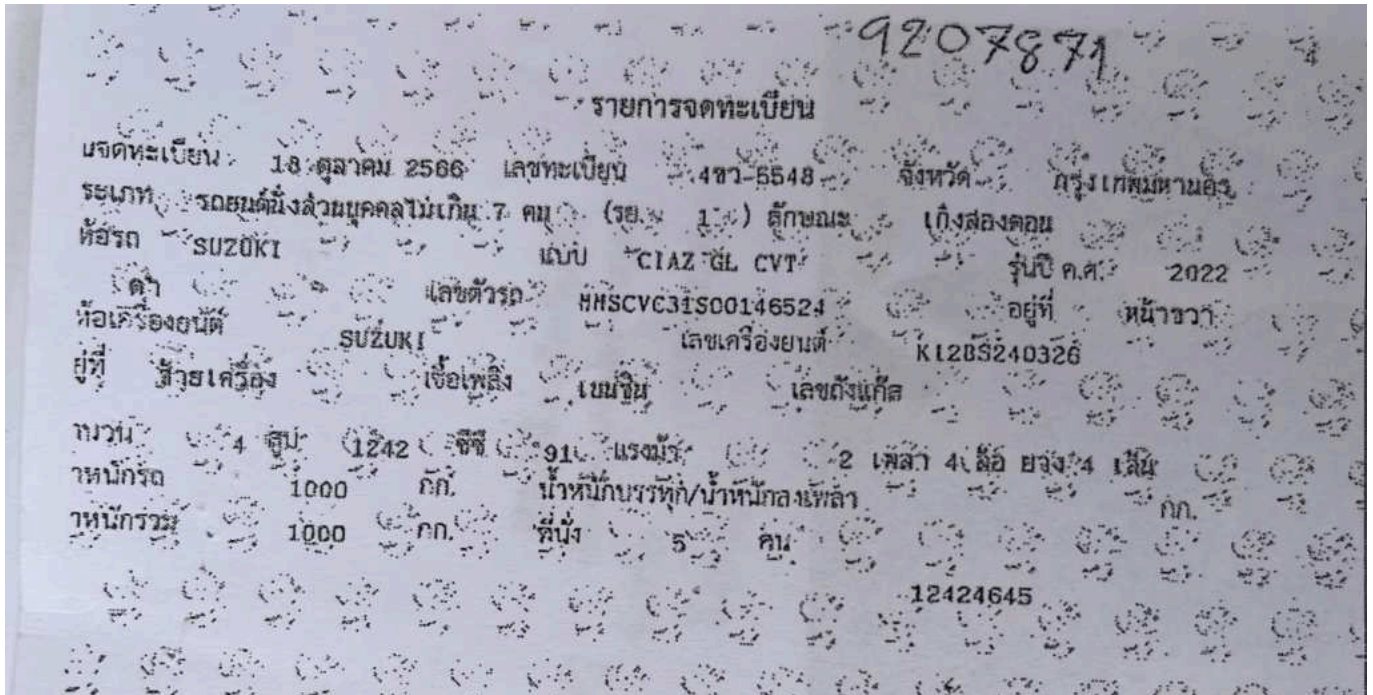 9207871
4
รายการจดทะเบียน
นจดทะเบียน 18 ตุลาคม 2566 เลขทะเบียน 4ขว-5548 จังหวัด กรุงเทพมหานคร
ระเภท รถยนต์นั่งส่วนบุคคลไม่เกิน 7 คน (รย. 1 ) ลักษณะ เก๋งสองตอน
ห้อรถ SUZUKI แบบ CIAZ GL CVT รุ่นปี ค.ศ. 2022
ดำ เลขตัวรถ MMSCVC31S00146524 อยู่ที่ หน้าขวา
ห้อเครื่องยนต์ SUZUKI เลขเครื่องยนต์ K12BS240326
ยู่ที่ ซ้ายเครื่อง เชื้อเพลิง เบนซิน เลขถังแก๊ส
านวน 4 สูบ 1242 ซีซี 91 แรงม้า 2 เพลา 4 ล้อ ยาง 4 เส้น
าหนักรถ 1000 กก. น้ำหนักบรรทุก/น้ำหนักลงเพลา กก.
าหนักรวม 1000 กก. ที่นั่ง 5 คน
12424645